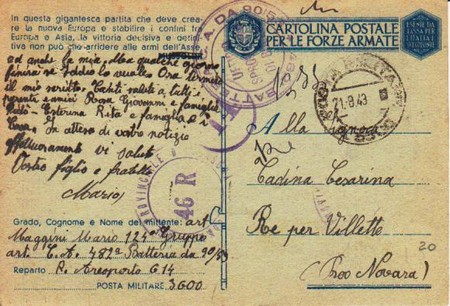 In questa gigantesca partita che deve crea-
re la nuova Europa e stabilire i confini tra
Europa e Asia, la vittoria decisiva e defini-
tiva non può che arridere alle armi dell'Asse
ed anche la mia. Ma qualche giorno
finirà se Iddio lo vuole. Ora termino
il mio scritto. Tanti saluti a tutti i
parenti amici Rosa Giovanni e famiglia
Esterina Rita e famiglia e i
In attesa di vostre notizie
affettuosamente vi saluto
Vostro figlio e fratello
Mario
Grado, Cognome e Nome del mittente: art
Magrini Mario 124º Gruppo
art. C. A. 482ª Batteria da 90/53
Reparto R. Areoporto G 14
POSTA MILITARE 3600
CARTOLINA POSTALE
PER LE FORZE ARMATE
POSTA MILITARE
21.8.43
PROVINCIALE
46 R
Alla Signora
Cadina Cesarina
Re per Villette
(Pro Novara)
20